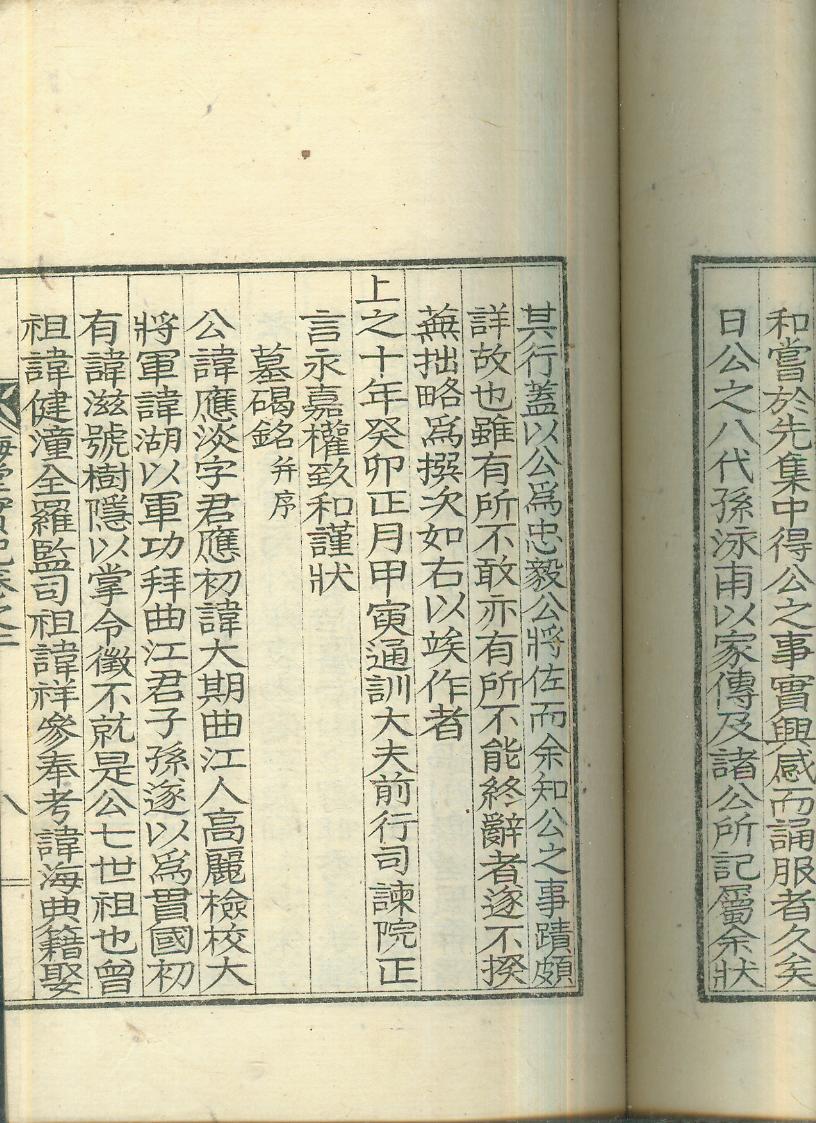 和嘗於先集中得公之事實興感而誦服者久矣
日公之八代孫泳甫以家傳及諸公所記屬余狀
其行蓋以公爲忠毅公將佐而余知公之事蹟頗
詳故也雖有所不敢亦有所不能終辭者遂不揆
蕪拙略爲撰次如右以竢作者
上之十年癸卯正月甲寅通訓大夫前行司諫院正
言永嘉權致和謹狀
墓碣銘 幷序
公諱應淡字君應初諱大期曲江人高麗檢校大
將軍諱湖以軍功拜曲江君子孫遂以爲貫國初
有諱滋號樹隱以掌令徵不就是公七世祖也曾
祖諱健潼全羅監司祖諱祥參奉考諱海典籍娶
卷之二
八